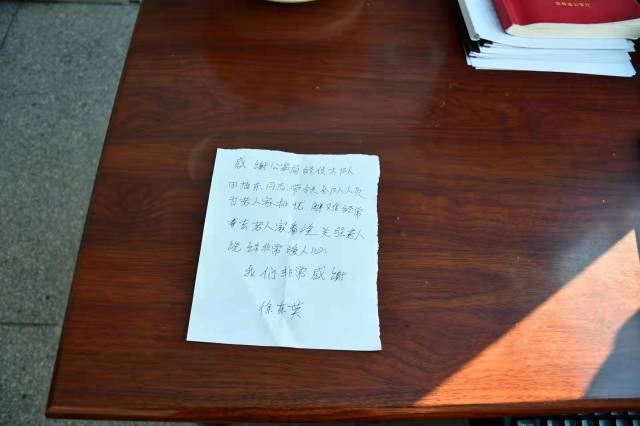 感谢公安局经侦大队
同志,带领全队人员
为老人家担忧 解难 经常
去老人家看望,关照老人
非常暖人心!
我们非常感谢
徐东英